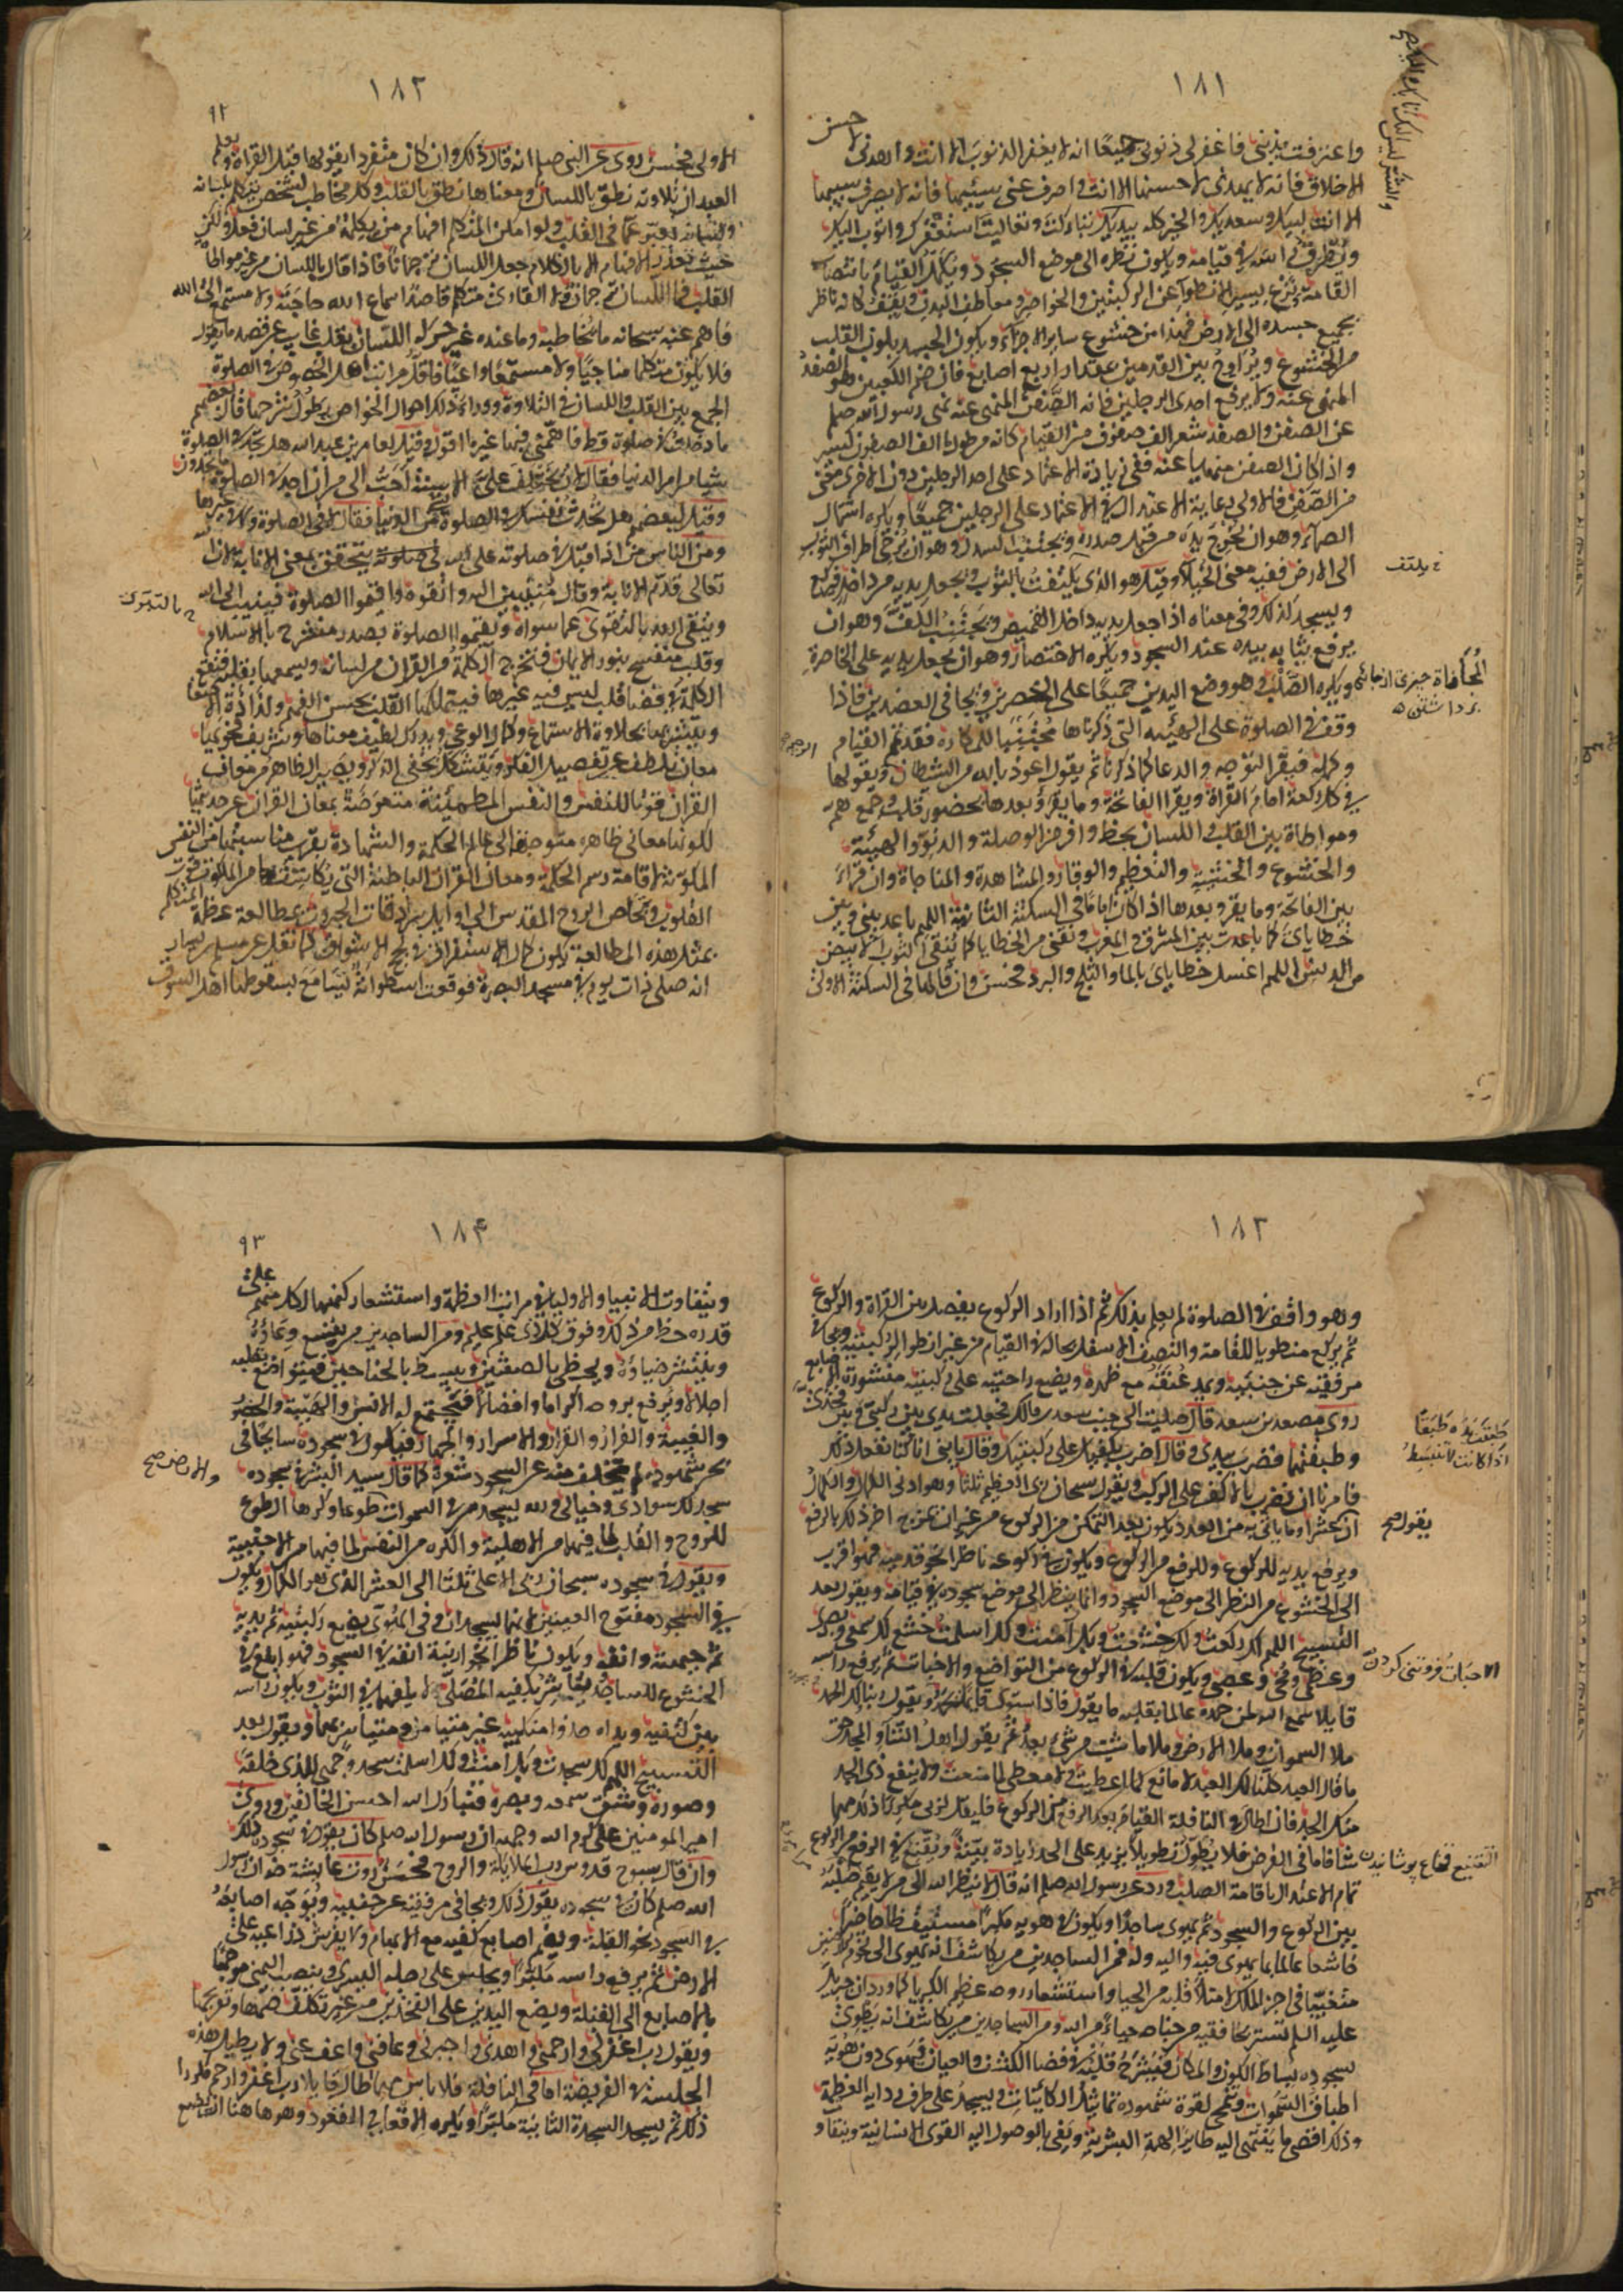 ١٨١
واعترفت بذنبى فاغفر لى ذنوبى جميعًا انه لا يغفر الذنوب الا انت واهدنى لاحسن
الاخلاق فانه لا يهدى لاحسنها الا انت واصرف عنى سيئها فانه لا يصرف سيئها
الا انت لبيك وسعديك والخير كله بيديك تباركت وتعاليت استغفرك واتوب اليك
ويطرق راسه فى قيامه ويكون نظره الى موضع السجود ويكمل القيام بانتصاب
القامة ونزع يسير الانطواء عن الركبتين والخواصر ومعاطف البدن ويقف كانه ناظر
بجميع جسده الى الارض فهذا من خشوع ساير الاجزاء ويكون الجسد بلون القلب
من الخشوع ويراوح بين القدمين بمقدار اربع اصابع فان ضم الكعبين هو الصفد
المنهى عنه ولا يرفع احدى الرجلين فانه الصفن المنهى عنه نهى رسول الله صلم
عن الصفن والصفد شعر الف صفوف من القيام كانه مرطوا الف الصفون كسير
واذا كان الصفن منهيا عنه ففى زيادة الاعتماد على احد الرجلين دون الاخرى معنى
من الصفن فالاولى رعاية الاعتدال فى الاعتماد على الرجلين جميعًا ويكره اشتمال
الصماء وهو ان يخرج يده من قبل صدره ويجتنب السدل وهو ان يرخى اطراف الثوب
الى الارض ففيه معنى الخيلاء وقيل هو الذى يلتف بالثوب ويجعل يديه من داخل فيركع
ويسجد كذلك وفى معناه اذا جعل يديه داخل القميص ويجتنب الكف وهو ان
يرفع ثيابه بيده عند السجود ويكره الاختصار وهو ان يجعل يديه على الخاصرة
ويكره الصلب وهو وضع اليدين جميعًا على الخصرين ويجافى العضدين فاذا
وقف فى الصلوة على الهيئة التى ذكرناها مجتنبًا للمكاره فقد تم القيام
وكمله فيقرا التوجه والدعا كما ذكرنا ثم يقول اعوذ بالله من الشيطان ويقولها
فى كل ركعة امام القراة ويقرا الفاتحة وما يقرؤ بعدها بحضور قلب وجمع هم
ومواطاة بين القلب واللسان بحظ وافر من الوصلة والدنو والهيبة
والخشوع والخشية والتعظيم والوقار والمشاهدة والمناجاة وان قراء
بين الفاتحة وما يقرو بعدها اذا كان اماما فى السكتة الثانية اللهم باعد بينى وبين
خطاياى كما باعدت بين المشرق والمغرب ونقنى من الخطايا كما ينقى الثوب الابيض
من الدنس اللهم اغسل خطاياى بالما والثلج والبرد فحسن وان قالها فى السكتة الاولى
يلتف
المجافاة
برداشتن
١٨٢
٩٢
الاولى فحسن روى عن النبى صلم انه قال ذلك وان كان منفردا يقولها قبل القراة ويعلم
العبد ان تلاوته نطق اللسان ومعناها نطق القلب وكل مخاطب لشخص يتكلم بلسانه
ولسانه يعبر عما فى قلبه ولو امكن المتكلم افهام من يكلمه من غير لسان فعل ولكن
حيث تعذر الافهام الا بالكلام جعل اللسان ترجمانًا فاذا قال باللسان من غير مواطاة
القلب فما اللسان ترجمان ولا القارئ متكلم قاصدا اسماع الله حاجته ولا مستمع الى الله
فاهم عنه سبحانه ما يخاطبه وما عنده غير حركة اللسان بقلب غايب عن قصد ما يقول
فلا يكون متكلما مناجيًا ولا مستمعًا واعيًا فاقل مراتب اهل الخصوص فى الصلوة
الجمع بين القلب واللسان فى التلاوة ووراء ذلك احوال الخواص يطول شرحها قال بعضهم
ما دخلت فى صلوة قط فاهمنى فيها غير ما اقول وقيل لعامر بن عبد الله هل تجد فى الصلوة
شيا من امر الدنيا فقال لان تختلف على الاسنة احب الى من ان اجد فى الصلوة ما تجدون
وقيل لبعضهم هل تحدث نفسك فى الصلوة بشئ من الدنيا فقال لا فى الصلوة ولا فى غيرها
ومن الناس من اذا اقبل فى صلوته على الله يتحقق بمعنى الانابة لان الله
تعالى قدم الانابة وقال منيبين اليه واتقوه واقيموا الصلوة فينيب الى الله
ويتقى الله بالتقوى عما سواه ويقيم الصلوة بصدر منشرح بالاسلام
وقلب منفسح بنور الايمان فتخرج الكلمة من القران من لسانه ويسمعها بقلبه فتقع
الكلمة فى فضا قلب ليس فيه غيرها فيتملكها القلب بحسن الفهم ولذاذة الاصغا
ويتشربها بحلاوة الاستماع وكمال الوعى ويدرك لطيف معناها وشريف فحواها
معان تلطف عن تفصيل الفكر وتتشكل بخفى الذكر ويصير الظاهر من معانى
القران قوت النفس والنفس المطمئنة متعوضة بمعانى القران عن حديثها
لكونها معانى ظاهرة متوجهة الى عالم الحكمة والشهادة بقرب مناسبتها من النفس
المكونة لاقامة رسم الحكمة ومعانى القران الباطنة التى يكاشف بها من الملكوت قوت
القلوب وتخلص الروح المقدس الى اوايل سرادقات الجبروت بمطالعة عظمة المتكلم
بمثل هذه المطالعة يكون كمال الاستغراق فى لجج الاشواق كما نقل عن مسلم بن يسار
انه صلى ذات يوم فى مسجد البصرة فوقعت اسطوانة تسامع بسقوطها اهل السوق
١٨٣
وهو واقف فى الصلوة لم يعلم بذلك ثم اذا اراد الركوع يفصل بين القراة والركوع
ثم يركع منطوى القامة والنصف الاسفل بحاله فى القيام من غير انطواء الركبتين ويجافى
مرفقيه عن جنبيه ويمد عنقه مع ظهره ويضع راحتيه على ركبتيه منشورة الاصابع
روى مصعد بن سعد قال صليت الى جنب سعد بن مالك فجعلت يدى بين ركبتى وبين فخذى
وطبقتهما فضرب بيدى وقال اضرب بكفيك على ركبتيك وقال يا بنى انا كنا نفعل ذلك
فامرنا ان نضرب بالاكف على الركب ويقول سبحان ربى العظيم ثلثا وهو ادنى الكمال والكمال
ان عشرا وما ياتى به من العدد يكون بعد التمكن من الركوع من غير ان يمزج اخر ذلك بالرفع
ويرفع يديه للركوع وللرفع من الركوع ويكون فى ركوعه ناظرا نحو قدميه فهو اقرب
الى الخشوع من النظر الى موضع السجود وانما ينظر الى موضع سجوده فى قيامه ويقول بعد
التسبيح اللهم لك ركعت ولك خشعت وبك آمنت ولك اسلمت خشع لك سمعى وبصرى
وعظمى ومخى وعصبى ويكون قلبه فى الركوع من التواضع والاخبات ثم يرفع راسه
قايلا سمع الله لمن حمده عالما بقلبه ما يقول فاذا استوى قايما يحمد ويقول ربنا لك الحمد
ملا السموات وملا الارض وملا ما شيت من شى بعد ثم يقول اهل الثناء والمجد احق
ما قال العبد كلنا لك العبد لا مانع لما اعطيت ولا معطى لما منعت ولا ينفع ذى الجد
منك الجد فان اطال فى النافلة القيام بعد الرفع من الركوع فليقل لربى الحمد مكررا ذلك مهما
شا فاما فى الفرض فلا يطول تطويلا يزيد على الحد زيادة بينة ويقنع فى الرفع من الركوع
تمام الاعتدال باقامة الصلب ورد عن رسول الله صلم انه قال لا ينظر الله الى من لا يقيم صلبه
بين الركوع والسجود ثم يهوى ساجدًا ويكون فى هويه مكبرًا مستيقظا حاضرًا
خاشعا عالما بما يهوى فيه واليه وله فمن الساجدين من يكاشف انه يهوى الى تخوم الارضين
متغيبًا فى اجزا الملك لامتلاء قلبه من الحيا واستشعار روحه عظيم الكبريا كما ورد ان جبريل
عليه السلم تستر بخافقيه من جناحه حياء من الله ومن الساجدين من يكاشف انه يطوى
بسجوده بساط الكون والمكان ويسرح قلبه فى فضا الكشف والعيان فتهوى دون هويه
اطباق السموات وتنمحى لقوة شهوده تماثيل الكائنات ويسجد على طرف ردا العظمة
وذلك اقصى ما ينتهى اليه طاير الهمة البشرية وتفى بالوصول اليه القوى الانسانية ويتفاو
يقول صح
الاخبات فروتنى كردن
١٨٤
٩٣
ويتفاوت الانبيا والاوليا فى مراتب العظمة واستشعار كنهها لكل منهم على
قدره حظ من ذلك وفوق كل ذى علم عليم ومن الساجدين من يتسع وعاؤه
وينتشر ضياؤه ويحظى بالصنفين ويبسط الجناحين فيتواضع بقلبه
اجلالا ويرفع بروحه اكراما وافضالا فيجتمع له الانس والهيبة والحضور
والغيبة والفرار والقرار والاسرار والجهار فيكون فى سجوده سابحا فى
بحر شهوده لم يتخلف منه عن السجود شعرة كما قال سيد البشر فى سجوده
سجد لك سوادى وخيالى ولله يسجد من فى السموات طوعا وكرها الطوع
للروح والقلب لما فيهما من الاهلية والكره من النفس لما فيها من الاجنبية
ويقول فى سجوده سبحان ربى الاعلى ثلثا الى العشر الذى هو الكمال ويكون
فى السجود مفتوح العينين لانهما يسجدان وفى الهوى يضع ركبتيه ثم يديه
ثم جبهته وانفه ويكون ناظرا نحو ارنبة انفه فى السجود فهو ابلغ فى
الخشوع للساجد ويباشر بكفيه المصلى لا يلفهما فى الثوب ويكون راسه
بين كفيه ويداه حذو منكبيه غير متيامن ومتياسر بهما ويقول بعد
التسبيح اللهم لك سجدت وبك امنت ولك اسلمت سجد وجهى للذى خلقه
وصوره وشق سمعه وبصره فتبارك الله احسن الخالقين وروى
امير المومنين على كرم الله وجهه ان رسول الله صلم كان يقول فى سجوده ذلك
وان قال سبوح قدوس رب الملائكة والروح فحسن روت عايشة ان رسول
الله صلم كان فى سجوده يقول ذلك ويجافى مرفقيه عن جنبيه ويوجه اصابعه
فى السجود نحو القبلة ويضم اصابع كفيه مع الابهام ولا يفرش ذراعيه على
الارض ثم يرفع راسه مكبرًا ويجلس على رجله اليسرى وينصب اليمنى موجها
بالاصابع الى القبلة ويضع اليدين على الفخذين من غير تكلف ضمهما وتفريجهما
ويقول رب اغفر لى وارحمنى واهدنى واجبرنى وعافنى واعف عنى ولا يطيل هذه
الجلسة فى الفريضة اما فى النافلة فلا باس مهما اطال قايلا رب اغفر وارحم مكررا
ذلك ثم يسجد السجدة الثانية مكبرًا ويكره الاقعا فى القعود وهو هاهنا ان يضع